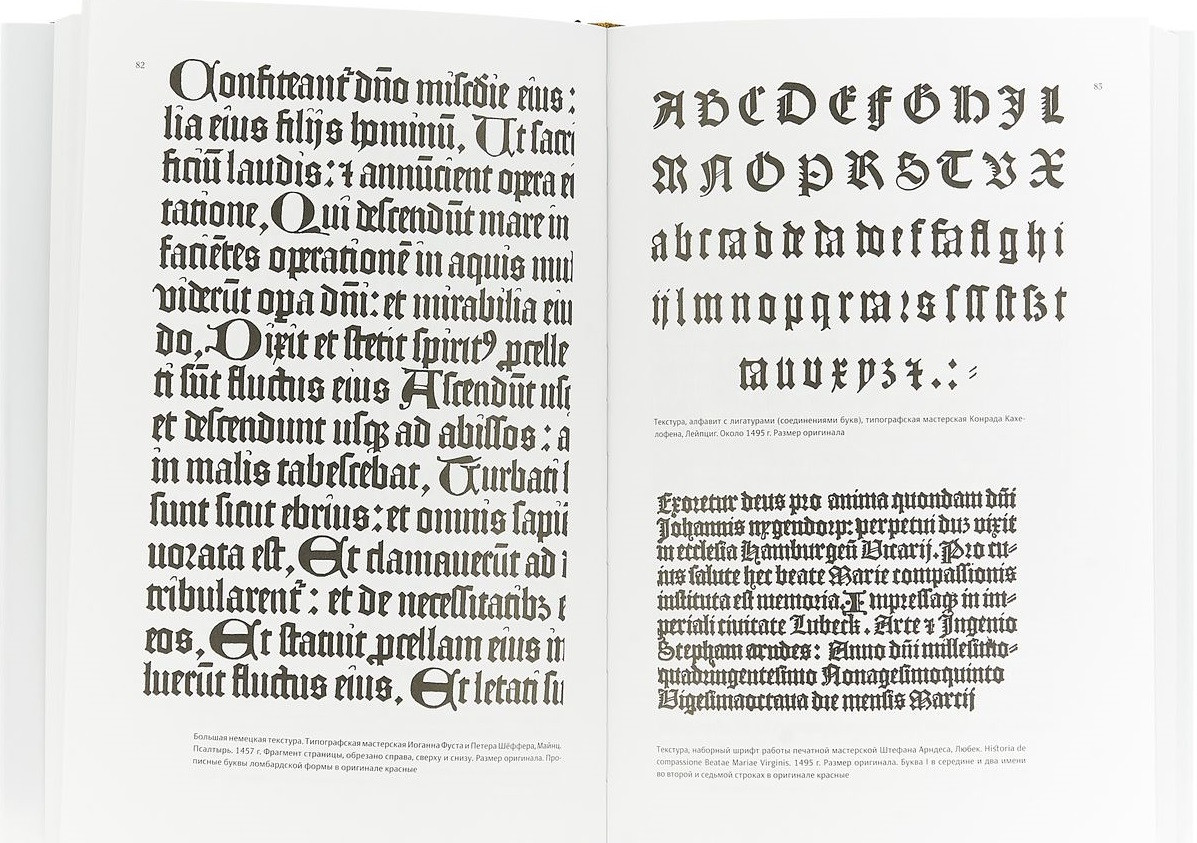 82
Confiteant᷑ dn̄o miſcd̄ie eius :
lia eius filijs hominū, Ut ſacri
ficiū laudis : ⁊ annūcient opera ei
tatione, Qui deſcendūt mare in
faciētes operationē in aquis mul
viderūt opa dn̄i : et mirabilia eiu
do, Dixit et ſtetit ſpiritꝰ ꝓcelle
ti ſūt fluctus eius Aſcendūt uſq
et deſcendunt uſqꝫ ad abiſſos : a
in malis tabeſcebat, Turbati ſ
ſunt ſicut ebrius : et omnis ſapiē
uorata eſt, Et clamauerūt ad
tribularent᷑ : et de neceſſitatibꝫ e
eos, Et ſtatuit ꝓcellam eius in
luerūt fluctus eius, Et letati ſu
Большая немецкая текстура. Типографская мастерская Иоганна Фуста и Петера Шёффера, Майнц.
Псалтырь. 1457 г. Фрагмент страницы, обрезано справа, сверху и снизу. Размер оригинала. Про-
писные буквы ломбардской формы в оригинале красные
83
A B C D E F G H I L
M N O P R S T V X
a b c ca d de da do e f ff fa fl g h i
ij l m n o p q r ra ꝛ s ſ ſſ ſi ſt ß t
ta u v x y z ⁊ . : ⸗
Текстура, алфавит с лигатурами (соединениями букв), типографская мастерская Конрада Кахе-
лофена, Лейпциг. Около 1495 г. Размер оригинала
Exoretur deus pro anima quondam dn̄i
Johannis nygendorp: perpetui dū vixit
in eccleſia Hamburgeñ Vicarij. Pro cu⸗
ius ſalute hec beate Marie compaſſionis
inſtituta eſt memoria, Impreſſaqꝫ in im⸗
periali ciuitate Lubeck. Arte ⁊ Ingenio
Stephani arndes : Anno dn̄i milleſimo⸗
quadringenteſimo Nonageſimoquinto
Vigeſimaoctaua die menſis Marcij
Текстура, наборный шрифт работы печатной мастерской Штефана Арндеса, Любек. Historia de
compassione Beatae Mariae Virginis. 1495 г. Размер оригинала. Буква I в середине и два имени
во второй и седьмой строках в оригинале красные